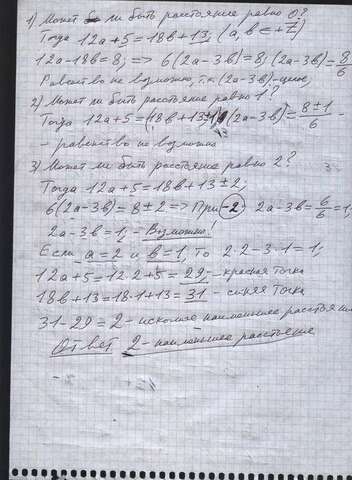 1) Может ли быть расстояние равно 0?
Тогда 12a+5=18b+13, (a, b ∈ +Z)
12a-18b=8; => 6(2a-3b)=8; (2a-3b)=8/6
Равенство не возможно, т.к (2a-3b)-целое,
2) Может ли быть расстояние равно 1?
Тогда 12a+5=(18b+13±1) (2a-3b)=8±1/6 -
- равенство не возможно
3) Может ли быть расстояние равно 2?
Тогда 12a+5=18b+13±2,
6(2a-3b)=8±2=> При -2 2a-3b=6/6=1,
2a-3b=1, - Возможно!
Если a=2 и b=1, то 2·2-3·1=1,
12a+5=12·2+5=29, - красная точка
18b+13=18·1+13=31 - синяя точка
31-29=2- искомое наименьшее
Ответ 2- наименьшее расстояние